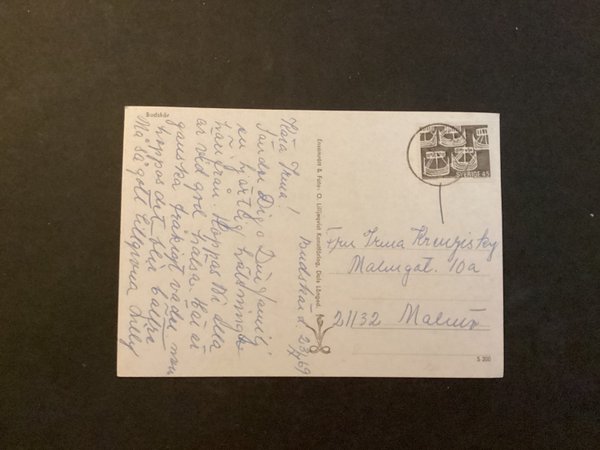 Budskär
Kära Irma!
Sänder Dig o Din familj
en hjärtlig hälsning
härifrån. Hoppas Ni alla
är vid god hälsa. Här är
ganska tråkigt väder men
hoppas det blir bättre
Må så gott tillgivna Lilly
Budskär d 23/ 69
Ensamrätt & Foto: O. Lilljeqvist Konstförlag, Dals Långed.
SVERIGE 45
Fru Irma
Malmgat. 10a
21132 Malmö
S 200